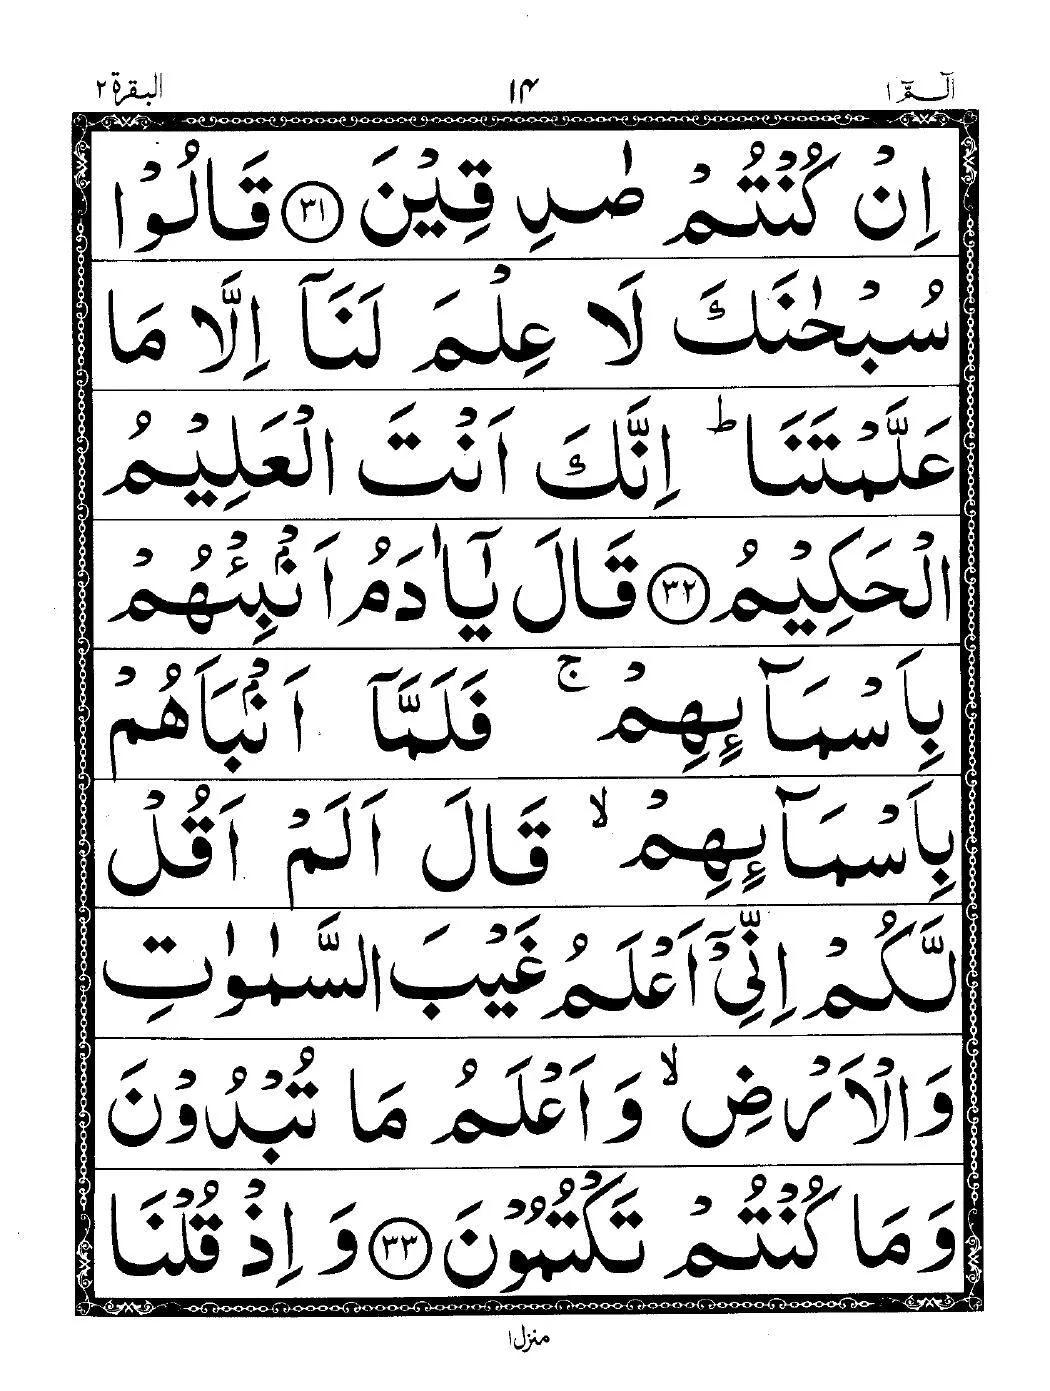 الٓـمّٓ ١ ١٤ البقرة ٢
اِنْ كُنْتُمْ صٰدِقِيْنَ ۝٣١ قَالُوْا
سُبْحٰنَكَ لَا عِلْمَ لَنَاۤ اِلَّا مَا
عَلَّمْتَنَا ؕ اِنَّكَ اَنْتَ الْعَلِيْمُ
الْحَكِيْمُ ۝٣٢ قَالَ يٰۤاٰدَمُ اَنْۢبِئْهُمْ
بِاَسْمَآىِٕهِمْ ۚ فَلَمَّاۤ اَنْۢبَاَهُمْ
بِاَسْمَآىِٕهِمْ ۙ قَالَ اَلَمْ اَقُلْ
لَّكُمْ اِنِّيْۤ اَعْلَمُ غَيْبَ السَّمٰوٰتِ
وَالْاَرْضِ ۙ وَاَعْلَمُ مَا تُبْدُوْنَ
وَمَا كُنْتُمْ تَكْتُمُوْنَ ۝٣٣ وَاِذْ قُلْنَا
منزل ١